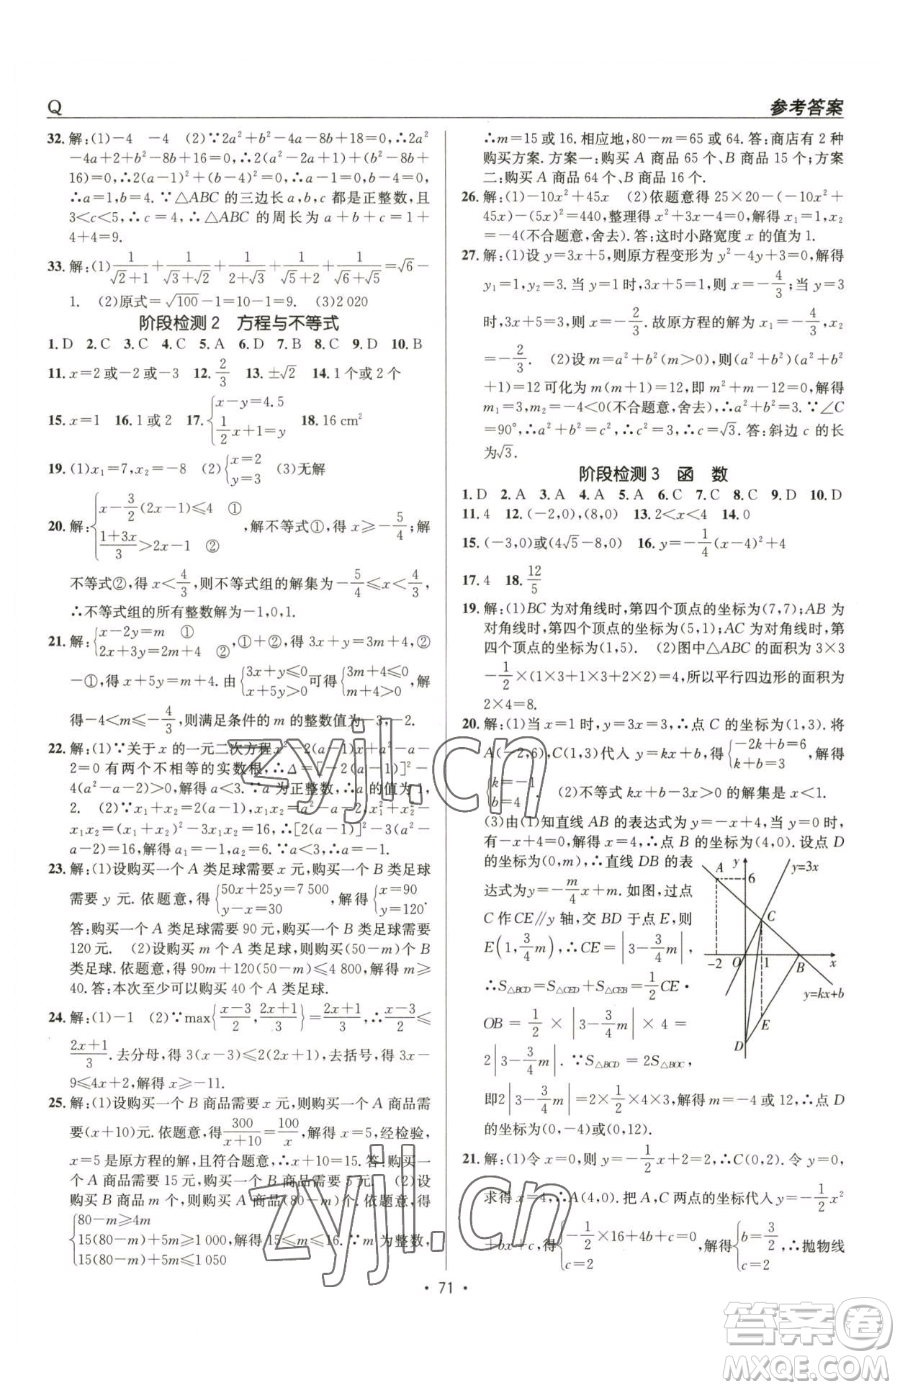 Q
参考答案
32. 解:(1)-4 -4 (2)∵2a²+b²-4a-8b+18=0,∴2a²
-4a+2+b²-8b+16=0,∴2(a-1)²+(b-4)²=0.又∵
(a-1)²≥0,(b-4)²≥0,∴a-1=0,b-4=0,
∴a=1,b=4. ∵△ABC 的三边长 a,b,c 都是正整数,且
3<c<5,∴c=4,∴△ABC 的周长为 a+b+c=1+
4+4=9.
33. 解:(1) 1/(√2+1) + 1/(√3+√2) + 1/(√4+√3) + 1/(√5+2) + 1/(√6+√5) =√6-
1. (2)原式=√100-1=10-1=9. (3)2 020
阶段检测 2 方程与不等式
1. D 2. C 3. C 4. C 5. A 6. D 7. B 8. C 9. D 10. B
11. x=2 或-2 或-3 12. 2/3 13. ±√2 14. 1 个或 2 个
15. x=1 16. 1 或 2 17. {x-y=4.5 1/2x+1=y 18. 16 cm²
19. (1)x₁=7,x₂=-8 (2){x=2 y=3 (3)无解
20. 解:{x-3/2(2x-1)≤4 ① (1+3x)/3>2x-1 ②,解不等式①,得 x≥-5/4;解
不等式②,得 x<4/3,则不等式组的解集为-5/4≤x<4/3,
∴不等式组的所有整数解为-1,0,1.
21. 解:{x-2y=m ① 2x+3y=2m+4 ②,①+②,得 3x+y=3m+4,②
-①,得 x+5y=m+4. 由{3x+y≤0 x+5y>0,得{3m+4≤0 m+4>0,解
得-4<m≤-4/3,则满足条件的 m 的整数值为-3,-2.
22. 解:(1)∵关于 x 的一元二次方程 x²-2(a-1)x+a²-a-
2=0 有两个不相等的实数根,∴Δ=[-2(a-1)]²-
4(a²-a-2)>0,解得 a<3.∵a 为正整数,∴a=1 或
2. (2)∵x₁+x₂=2(a-1),x₁x₂=a²-a-2,x₁²+x₂²-
x₁x₂=16,∴(x₁+x₂)²-3x₁x₂=16,∴[2(a-1)]²-3(a²
-a-2)=16,解得 a₁=-1,a₂=6. ∵a<3,∴a=-1.
23. 解:(1)设购买一个 A 类足球需要 x 元,购买一个 B 类足球
需要 y 元. 依题意,得{50x+25y=7 500 y-x=30,解得{x=90 y=120.
答:购买一个 A 类足球需要 90 元,购买一个 B 类足球需要
120 元. (2)设购买 m 个 A 类足球,则购买(50-m)个 B
类足球. 依题意,得 90m+120(50-m)≤4 800,解得 m≥
40. 答:本次至少可以购买 40 个 A 类足球.
24. 解:(1)-1 (2)∵max{(x-3)/2,(2x+1)/3}=(2x+1)/3,∴(x-3)/2≤
(2x+1)/3. 去分母,得 3(x-3)≤2(2x+1),去括号,得 3x-
9≤4x+2,解得 x≥-11.
25. 解:(1)设购买一个 B 商品需要 x 元,则购买一个 A 商品需
要(x+10)元. 依题意,得 300/(x+10)=100/x,解得 x=5,经检验,
x=5 是原方程的解,且符合题意,∴x+10=15. 答:购买一
个 A 商品需要 15 元,购买一个 B 商品需要 5 元. (2)设
购买 B 商品 m 个,则购买 A 商品(80-m)个. 依题意,得
{80-m≥4m 15(80-m)+5m≥1 000,解得 15≤m≤16. ∵m 为整数,
15(80-m)+5m≤1 050
∴m=15 或 16. 相应地,80-m=65 或 64. 答:商店有 2 种
购买方案. 方案一:购买 A 商品 65 个、B 商品 15 个;方案
二:购买 A 商品 64 个、B 商品 16 个.
26. 解:(1)-10x²+45x (2)依题意得 25×20-(-10x²+
45x)-(5x)²=440,整理得 x²+3x-4=0,解得 x₁=1,x₂
=-4(不合题意,舍去). 答:这时小路宽度 x 的值为 1.
27. 解:(1)设 y=3x+5,则原方程变形为 y²-4y+3=0,解得
y₁=1,y₂=3. 当 y=1 时,3x+5=1,解得 x=-4/3;当 y=3
时,3x+5=3,解得 x=-2/3. 故原方程的解为 x₁=-4/3,x₂=
-2/3. (2)设 m=a²+b²(m>0),则(a²+b²)(a²+b²
+1)=12 可化为 m(m+1)=12,即 m²+m-12=0,解得
m₁=3,m₂=-4<0(不合题意,舍去),∴a²+b²=3. ∵∠C
=90°,∴a²+b²=c²,∴c²=3,∴c=√3. 答:斜边 c 的长
为√3.
阶段检测 3 函 数
1. D 2. A 3. A 4. D 5. A 6. C 7. C 8. D 9. D 10. D
11. 4 12. (-2,0),(8,0) 13. 2<x<4 14. 0
15. (-3,0)或(4√5-8,0) 16. y=-1/4(x-2)²+4
17. 4 18. 12/5
19. 解:(1)BC 为对角线时,第四个顶点的坐标为(7,7);AB 为
对角线时,第四个顶点的坐标为(5,1);AC 为对角线时,第
四个顶点的坐标为(1,5). (2)图中△ABC 的面积为 3×3
-1/2×(1×3+1×3+2×2)=4,所以平行四边形的面积为
2×4=8.
20. 解:(1)当 x=1 时,y=3x=3,∴点 C 的坐标为(1,3). 将
A(-2,6),C(1,3)代入 y=kx+b,得{-2k+b=6 k+b=3,解得
{k=-1 b=4. (2)不等式 kx+b-3x>0 的解集是 x<1.
(3)由(1)知直线 AB 的表达式为 y=-x+4,当 y=0 时,
-x+4=0,解得 x=4,∴点 B 的坐标为(4,0). 设点 D
的坐标为(0,m),∴直线 DB 的表
达式为 y=-m/4x+m. 如图,过点
C 作 CE∥y 轴,交 BD 于点 E,则
E(1,3/4m),∴CE=|3-3/4m|,
∴S△BCD=S△CED+S△CEB=1/2CE·
OB=1/2×|3-3/4m|×4=
2|3-3/4m|. ∵S△BCD=2S△BOC,
即2|3-3/4m|=1/2×4×3×2,解得 m=-4 或 12,∴点 D
的坐标为(0,-4)或(0,12).
y
y=3x
A
6
C
-2
O
1
B
x
E
y=kx+b
D
21. 解:(1)令 x=0,得 y=-1/2x+2=2,∴C(0,2). 令 y=0,
求得 x=4,∴A(4,0). 把 A,C 两点的坐标代入 y=-1/2x²
+bx+c,得{-1/2×16+4b+c=0 c=2,解得{b=3/2 c=2,∴抛物线
· 71 ·
zyjl.cn
zyjl.cn
答案圈
MXQE.COM